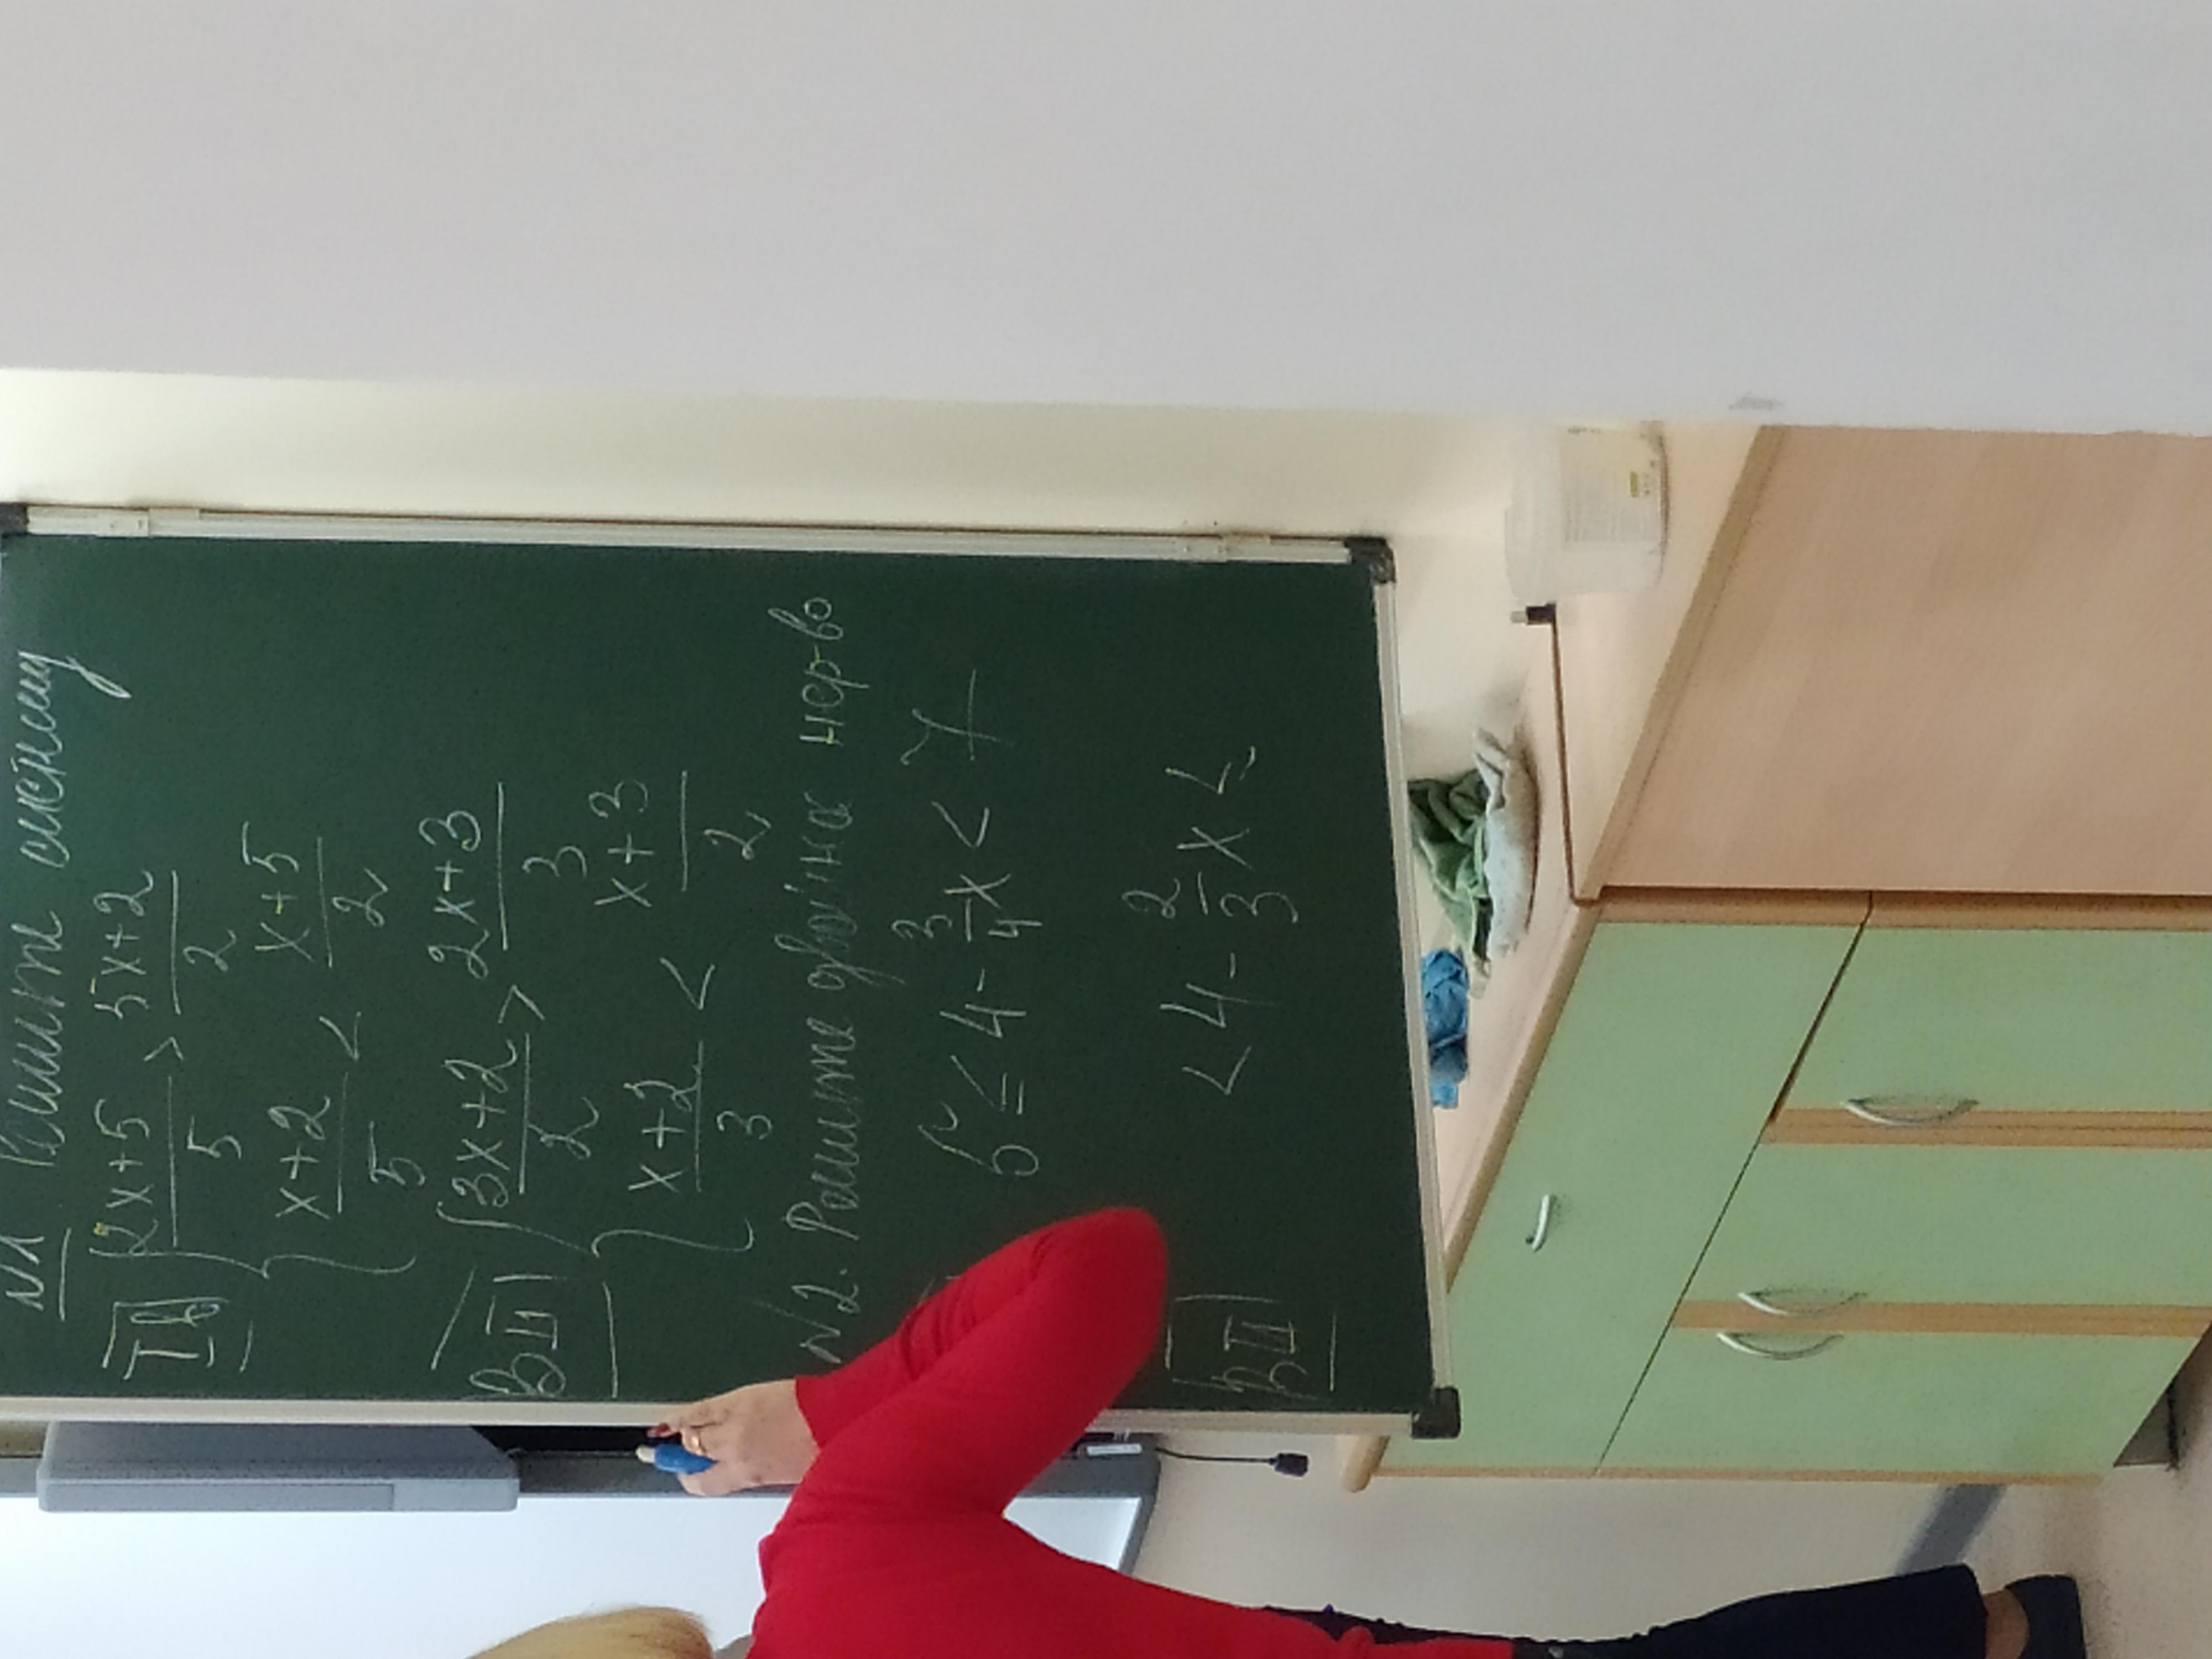 №1 Решите систему
I в
{ 2x+5/5 > 5x+2/2
x+2/5 < x+5/2
В II
{ 3x+2/2 > 2x+3/3
x+2/3 < x+3/2
№2. Решите двойное нер-во
5 ≤ 4 - 3/4 x < 7
В II
< 4 - 2/3 x ≤